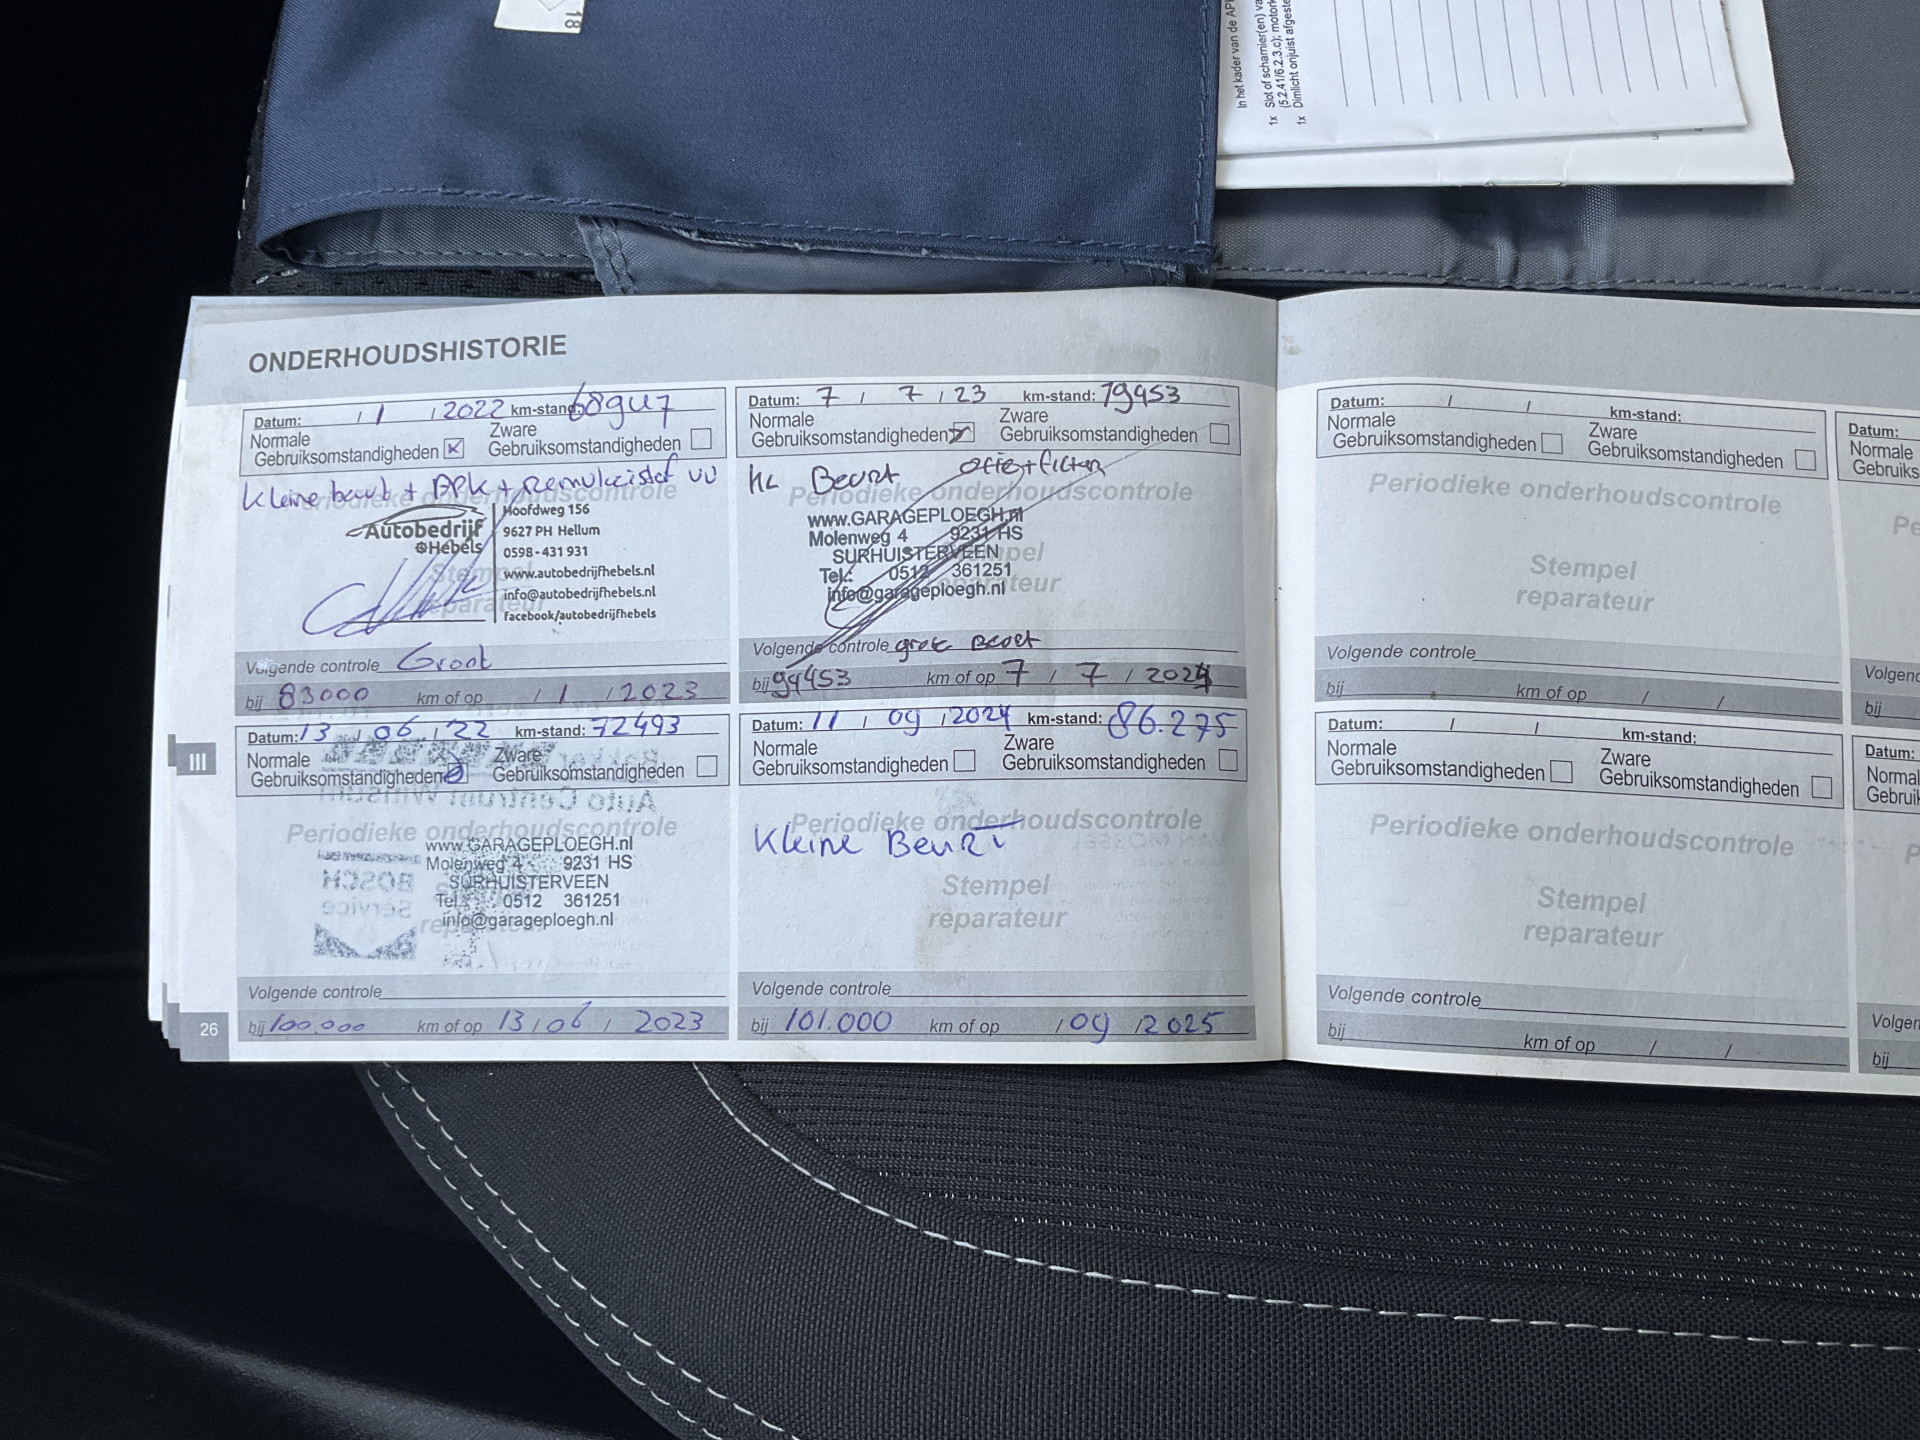 18
In het kader van de AP
1x Slot of scharnier(en) va
(5.2.41/6.2.3.c); motork
1x Dimlicht onjuist afgeste
ONDERHOUDSHISTORIE
Datum: / 1 / 2022 km-stand: 68947
Normale
Gebruiksomstandigheden
Zware
Gebruiksomstandigheden
Kleine beurt + APK + Remvloeistof vv
Periodieke onderhoudscontrole
Stempel
reparateur
Autobedrijf
Hebels
Hoofdweg 156
9627 PH Hellum
0598-431 931
www.autobedrijfhebels.nl
info@autobedrijfhebels.nl
facebook/autobedrijfhebels
Volgende controle Groot
bij 83000 km of op / 1 / 2023
Datum: 13 / 06 / 22 km-stand: 72493
Normale
Gebruiksomstandigheden
Zware
Gebruiksomstandigheden
Auto Centrum Winsum
Periodieke onderhoudscontrole
www.GARAGEPLOEGH.nl
Molenweg 4 9231 HS
SURHUISTERVEEN
Tel.: 0512 361251
info@garageploegh.nl
BOSCH
Service
Volgende controle
bij 100.000 km of op 13 / 06 / 2023
III
26
Datum: 7 / 7 / 23 km-stand: 79453
Normale
Gebruiksomstandigheden
Zware
Gebruiksomstandigheden
KL Beurt olie+filter
Periodieke onderhoudscontrole
Stempel
reparateur
www.GARAGEPLOEGH.nl
Molenweg 4 9231 HS
SURHUISTERVEEN
Tel.: 0512 361251
info@garageploegh.nl
Volgende controle grote Beurt
bij 94453 km of op 7 / 7 / 2024
Datum: 11 / 09 / 2024 km-stand: 86.275
Normale
Gebruiksomstandigheden
Zware
Gebruiksomstandigheden
Periodieke onderhoudscontrole
Kleine Beurt
Stempel
reparateur
Volgende controle
bij 101.000 km of op / 09 / 2025
Datum: / / km-stand:
Normale
Gebruiksomstandigheden
Zware
Gebruiksomstandigheden
Periodieke onderhoudscontrole
Stempel
reparateur
Volgende controle
bij km of op / /
Datum: / / km-stand:
Normale
Gebruiksomstandigheden
Zware
Gebruiksomstandigheden
Periodieke onderhoudscontrole
Stempel
reparateur
Volgende controle
bij km of op / /
Datum:
Normale
Gebruiks
Pe
Volgend
bij
Datum:
Normal
Gebruik
P
Volgen
bij